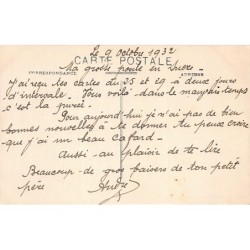 Le 9 Octobre 1932
CARTE POSTALE
Ma grosse poule en sucre
CORRESPONDANCE ADRESSE
J'ai reçu tes cartes du 25 et 29 à deux jours
d'intervale. Vous voilà dans le mauvais temps
c'est la purée.
Pour aujourd'hui je n'ai pas de bien
bonnes nouvelles à te donner. Tu peux croire
que j'ai un beau Cafard.
Aussi au plaisir de te lire
Beaucoup de gros baisers de ton petit
père André